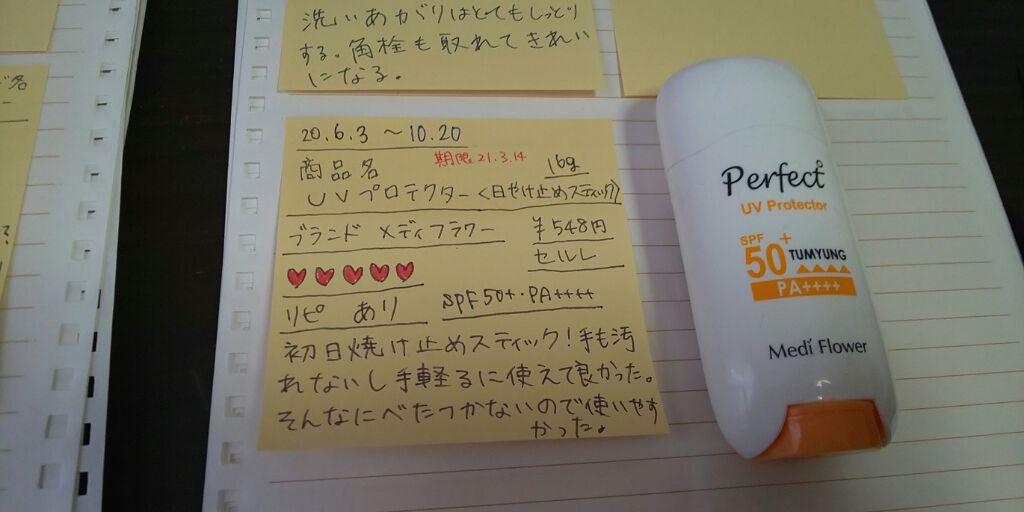 洗いあがりはとてもしっとり
する。角栓も取れてきれい
になる。
20.6.3 ～10.20
期限21.3.14
商品名
16g
UVプロテクター<日やけ止めスティック>
ブランド メディフラワー
¥548円
セルレ
リピ あり
SPF50+・PA++++
初日焼け止めスティック!手も汚
れないし手軽るに使えて良かった。
そんなにべたつかないので使いやす
かった。
Perfect
UV Protector
SPF
50+
TUMYUNG
PA++++
Medi Flower